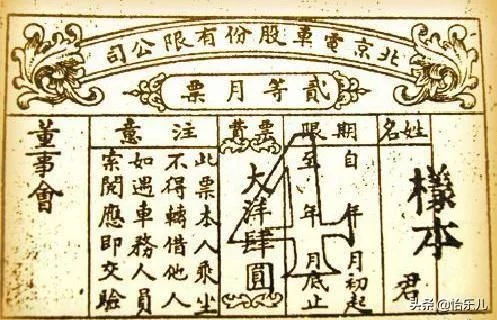 北京電車股份有限公司
貳等月票
姓名
樣本
君
期限
自 年 月初起
至 年 月底止
票費
大洋肆圓
4
注意
此票本人乘坐
不得轉借他人
如遇車務人員
索閱應即交驗
董事會
头条 @怡乐儿